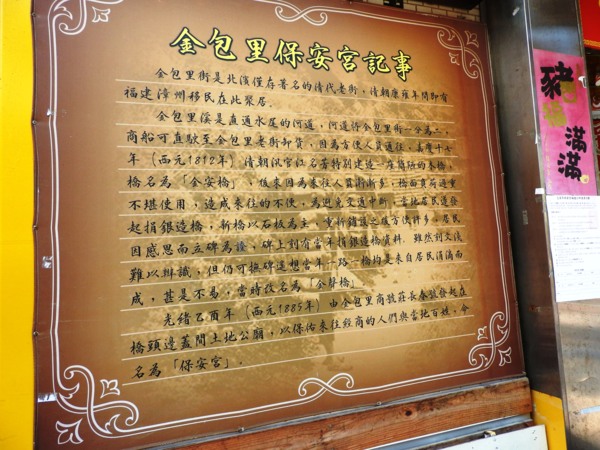 金包里保安宮記事
金包里街是北濱僅存著名的清代老街，清朝康雍年間即有
福建漳州移民在此聚居。
金包里溪是直通水尾的河道，河道將金包里街一分為二，
商船可直駛至金包里老街卸貨，因為方便人員通往，嘉慶十七
年（西元1812年）清朝汛官紅名芳特別建造一座簡陋的木橋，
橋名為「金安橋」，後來因為來往人貨漸多，橋面負荷過重
不堪使用，造成來往的不便，為避免交通中斷，當地居民遂發
起捐銀造橋，新橋以石板為主，重新鋪設之後方便許多，居民
因感恩而立碑為證，碑上刻有當年捐銀造橋資料．雖然刻文淺
難以辨識，但仍可撫碑遙想當年一路一橋均是來自居民涓滴而
成，甚是不易，當時改名為「金聲橋」
光緒乙酉年（西元1885年）由金包里商號莊長春號發起在
橋頭邊蓋間土地公廟，以保佑來往經商的人們與當地百姓，命
名為「保安宮」．
豬
滿
滿